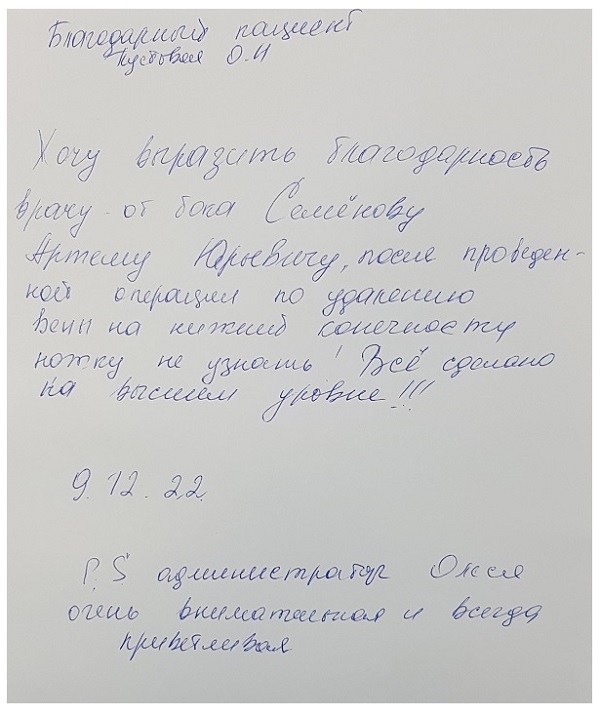 Благодарный пациент
Кустовая О.И
Хочу выразить благодарность
врачу от бога Семёнову
Артему Юрьевичу, после проведен-
ной операции по удалению
вены на нижней конечности
ножку не узнать! Всё сделано
на высшем уровне!!!
9.12.22.
P.S администратор Оксея
очень внимательная и всегда
приветливая